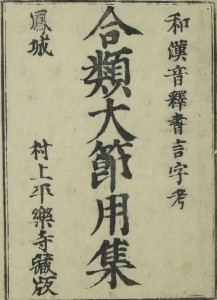 和漢音釋書言字考
合類大節用集
鳳城
村上平樂寺藏版